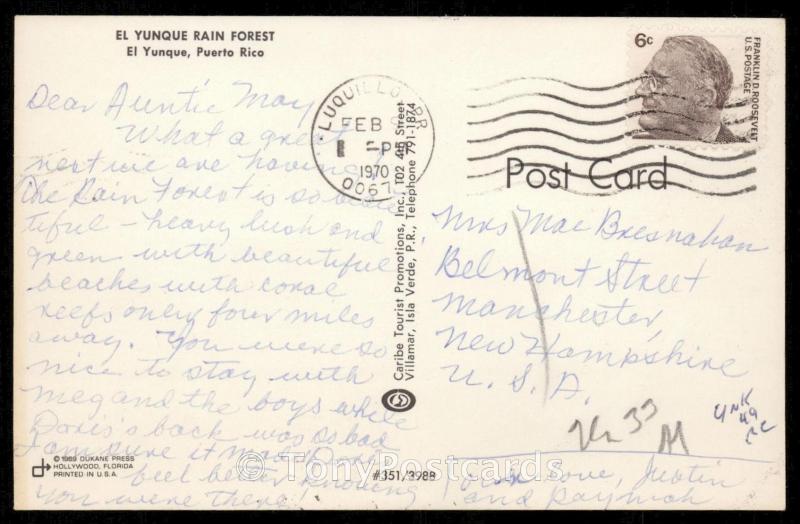 EL YUNQUE RAIN FOREST
El Yunque, Puerto Rico
Dear Auntie May
What a great
rest we are having!
The Rain Forest is so beau
tiful - heavy lush and
green with beautiful
beaches with coral
reefs only four miles
away. You were so
nice to stay with
meg and the boys while
Doris's back was so bad
I am sure it made Doris
feel better knowing
you were there!
© 1969 DUKANE PRESS
HOLLYWOOD, FLORIDA
PRINTED IN U.S.A.
LUQUILLO, PR
FEB
PM
1970
0067
Caribe Tourist Promotions, Inc., T02 4th Street
Villamar, Isla Verde, P.R., Telephone 791-1874
#351/3988
6c
FRANKLIN D. ROOSEVELT
U.S. POSTAGE
Post Card
Mrs Mae Bresnahan
Belmont Street
Manchester,
New Hampshire
U. S. A.
33
M
UNK
49
CC
love, Justin
and
© TonyPostcards